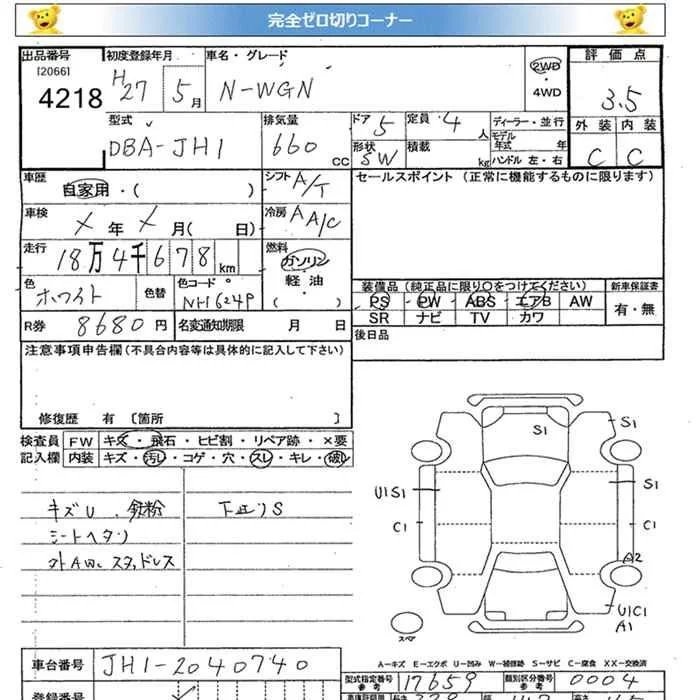 完全ゼロ切りコーナー
出品番号 初度登録年月 車名・グレード 評価点
[2066]
4218 H27 5月 N-WGN 2WD 4WD 3.5
型式 排気量 ドア 5 定員 4人 ディーラー・並行 外装 内装
DBA-JH1 660CC 形状 SW 積載 kg モデル年式 年 ハンドル 左・右 C C
車歴 シフト A/T セールスポイント(正常に機能するものに限ります)
自家用・( )
車検 X年X月( 日) 冷房 AA/C
走行 18万4千678km 燃料 ガソリン 軽油 ( )
色 ホワイト 色替 色コード NH624P
装備品(純正品に限り○をつけてください) 新車保証書
PS PW ABS エアB AW 有・無
SR ナビ TV カワ
R券 8680円 名変通知期限 月 日
後日品
注意事項申告欄(不具合内容等は具体的に記入して下さい)
修復歴 有 [箇所 ]
検査員 FW キズ・飛石・ヒビ割・リペア跡・×要
記入欄 内装 キズ・汚レ・コゲ・穴・スレ・キレ・破レ
キズU 鉄粉 下廻りS
シートヘタリ
外AW、スタッドレス
S1 S1
U1S1 S1
C1 C1
A2
U1C1
A1
スペア
A-キズ E-エクボ U-凹み W-補修跡 S-サビ C-腐食 XX-交換済
車台番号 JH1-2040740
型式指定番号 参考 17659 類別区分番号 参考 0004
登録番号